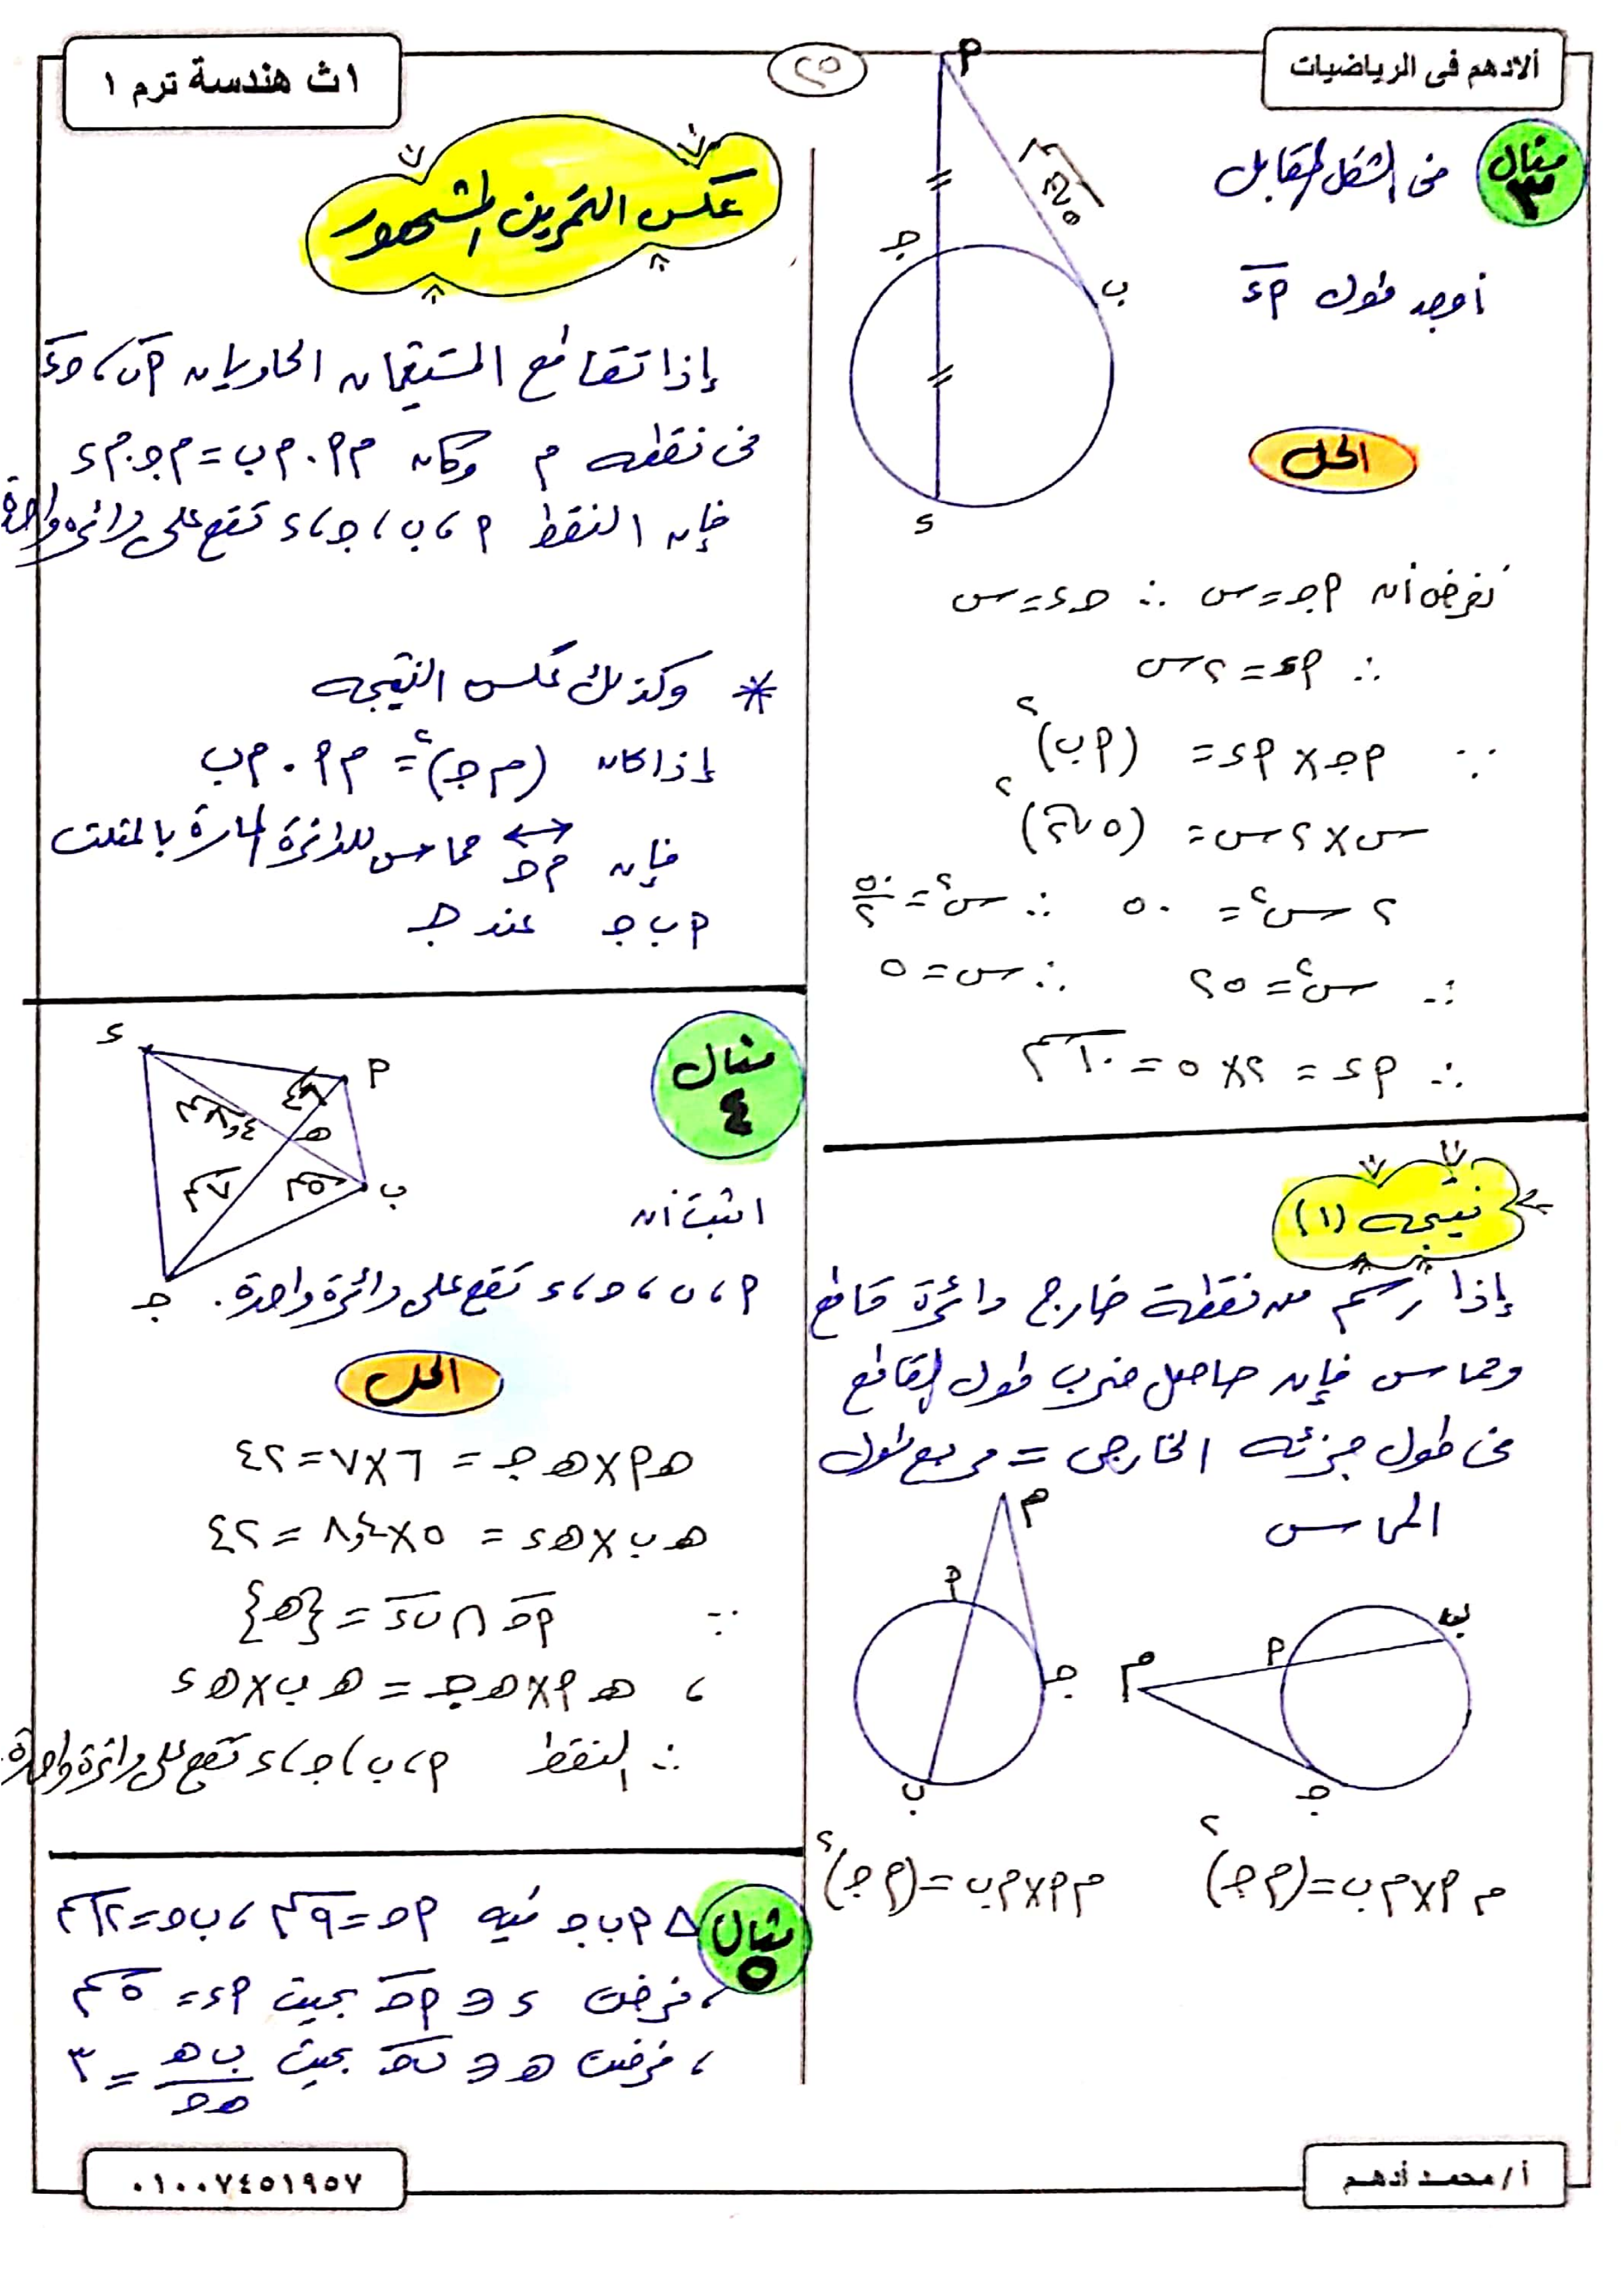 ألادهم فى الرياضيات
٢٥
١ث هندسة ترم ١
مثال ٣
فى الشكل المقابل
أوجد طول أد
أ
٥√٢ سم
ج
ب
د
الحل
نفرض أن أج = س ∴ جد = س
∴ أد = ٢س
∵ أج × أد = (أب)٢
س × ٢س = (٥√٢)٢
٢س٢ = ٥٠ ∴ س٢ = ٥٠/٢
∴ س٢ = ٢٥ ∴ س = ٥
∴ أد = ٢ × ٥ = ١٠ سم
نتيجه (١)
إذا رسم من نقطة خارج دائرة قاطع
ومماس فإن حاصل ضرب طول القاطع
فى طول جزئه الخارجى = مربع طول
المماس
م
أ
ج
ب
م
أ
ب
ج
م أ × م ب = (م ج)٢
م أ × م ب = (م ج)٢
عكس التمرين المشهور
إذا تقاطع المستقيمان الحاويان أب ، جد
فى نقطه م وكان م أ . م ب = م ج . م د
فإن النقط أ ، ب ، ج ، د تقع على دائرة واحدة
* وكذلك عكس النتيجه
إذا كان (م ج)٢ = م أ . م ب
فإن م ج مماس للدائرة المارة بالمثلث
أ ب ج عند ج
مثال ٤
د
أ
٦سم
٨,٤سم
ه
٧سم
٥سم
ب
ج
اثبت أن
أ ، ب ، ج ، د تقع على دائرة واحدة .
الحل
ه أ × ه ج = ٦ × ٧ = ٤٢
ه ب × ه د = ٥ × ٨,٤ = ٤٢
∵ أج ∩ ب د = {ه}
، ه أ × ه ج = ه ب × ه د
∴ النقط أ ، ب ، ج ، د تقع على دائرة واحدة .
مثال ٥
△ أ ب ج فيه أج = ٩ سم ، ب ج = ١٢ سم
، فرضت د ∈ أج بحيث أد = ٥ سم
، فرضت ه ∈ ب ج بحيث ب ه / ه ج = ٣
أ / محمد أدهم
٠١٠٠٧٤٥١٩٥٧